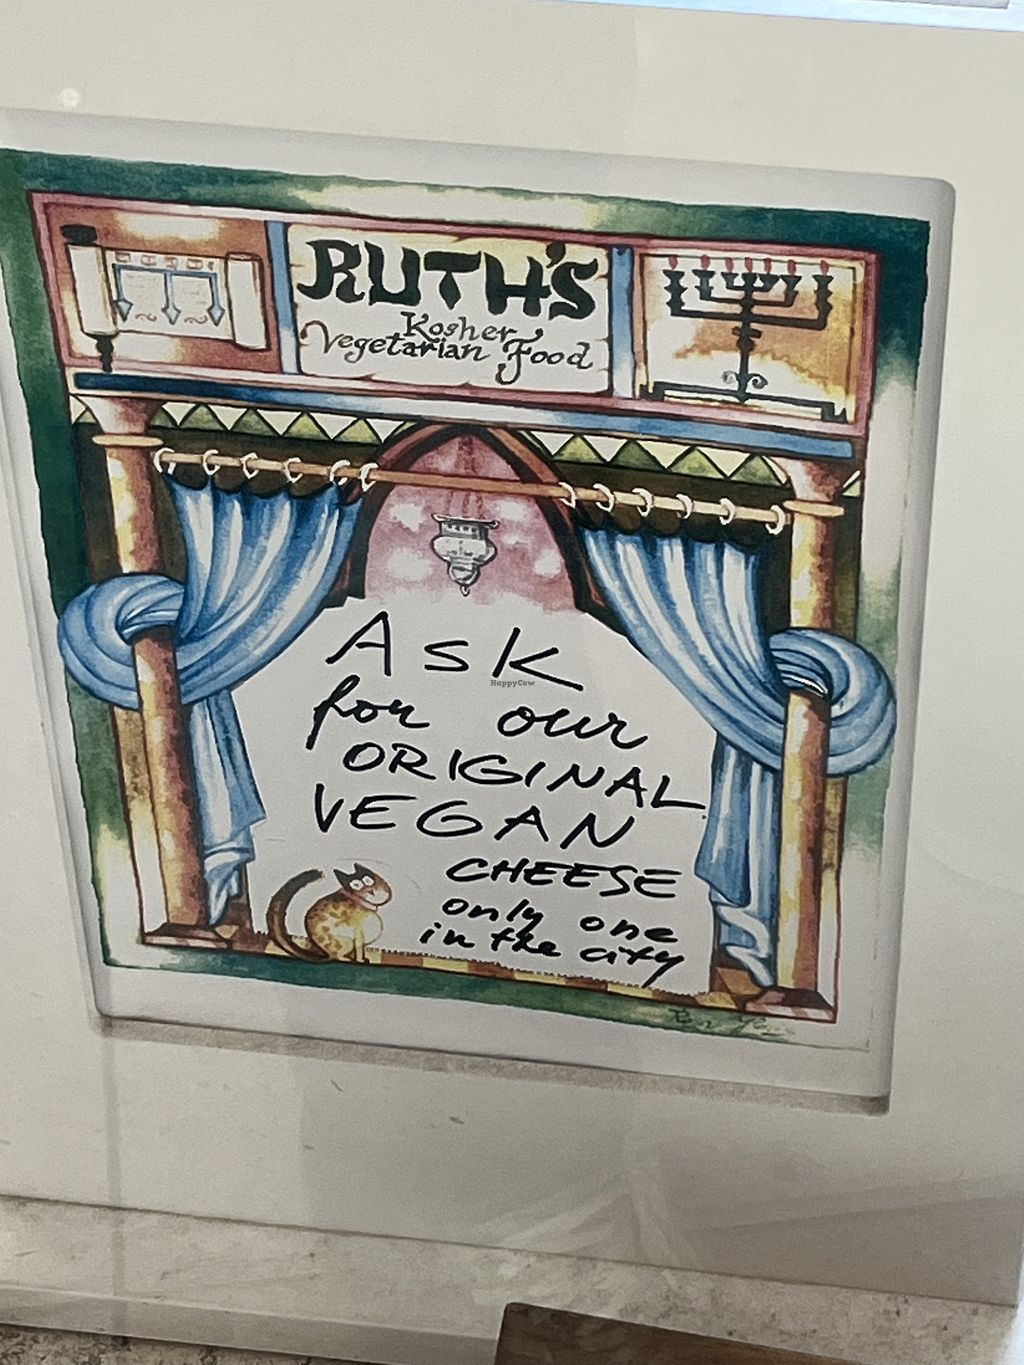 RUTH'S
Kosher
Vegetarian Food
ASK
for our
ORIGINAL
VEGAN
CHEESE
only one
in the city
HappyCow